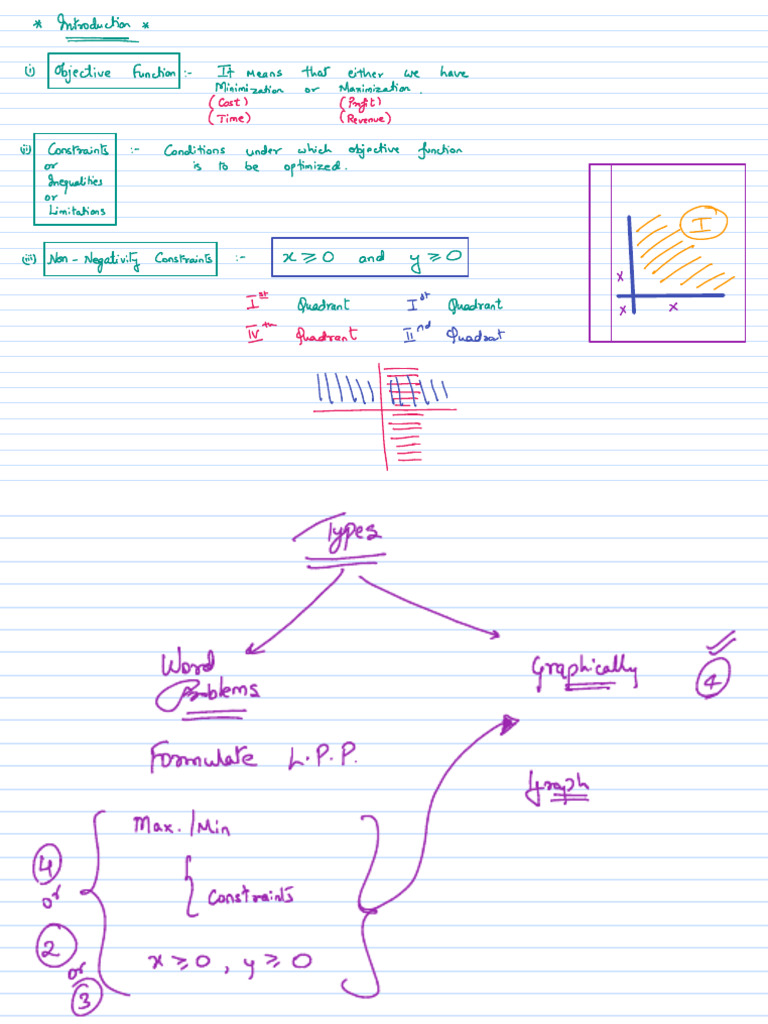 * Introduction *
(i) Objective Function :- It means that either we have
Minimization or Maximization.
(Cost) (Profit)
(Time) (Revenue)
(ii) Constraints :- Conditions under which objective function
or is to be optimized.
Inequalities
or
Limitations
I
x
x x
(iii) Non-Negativity Constraints :- x ≥ 0 and y ≥ 0
Ist Quadrant Ist Quadrant
IVth Quadrant IInd Quadrat
Types
Word Graphically 4
Problems
Formulate L.P.P.
Graph
Max. / Min
4
or Constraints
2
or x ≥ 0, y ≥ 0
3